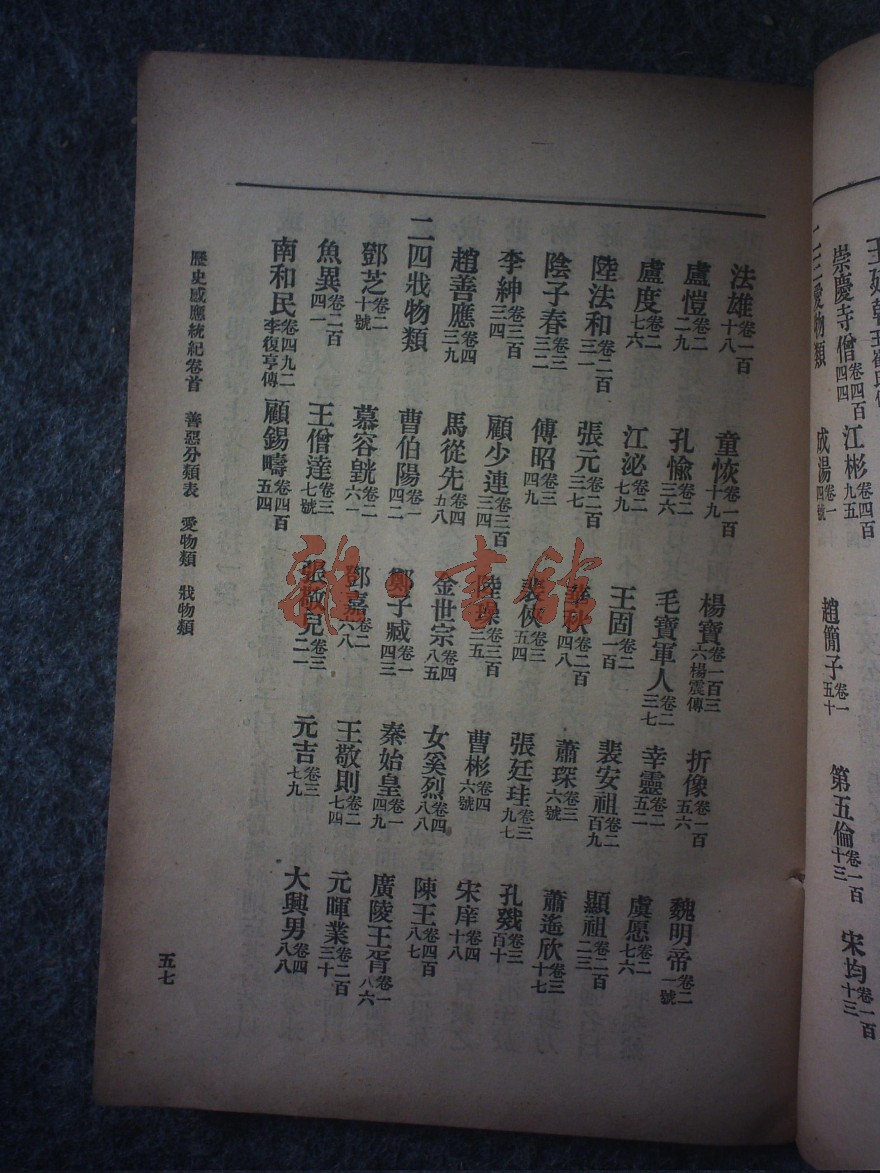 崇慶寺僧卷四百四四 江彬卷四百九五
二三愛物類 成湯卷一四號 趙簡子卷一五十 第五倫卷一百十三 宋均卷一百十三
法雄卷一百十八 童恢卷一百十九 楊寶卷一百三六楊震傳 折像卷一百五六 魏明帝卷二一號
盧愷卷二二九 孔愉卷二三六 毛寶軍人卷二三七 幸靈卷二五二 虞愿卷二七六
盧度卷二七六 江泌卷二七九 王固卷二一百 裴安祖卷二百九 顯祖卷二百二三
陸法和卷二百三一 張元卷二百三七 華秋卷二百四八 蕭琛卷三六號 蕭遙欣卷三十七
陰子春卷三三二 傅昭卷三四九 裴俠卷三五四 張廷珪卷三九七 孔戣卷三百十
李紳卷三百三四 顧少連卷三百三四 陸璪卷三百三五 曹彬卷四六號 宋庠卷四十八
趙善應卷四三九 馬從先卷四五八 金世宗卷四八五 女奚烈卷四八八 陳王卷四百八七
二四戕物類 曹伯陽卷一四二 鄭子臧卷一四三 秦始皇卷一四九 廣陵王胥卷一八六
鄧芝卷二十號 慕容皝卷二六一 鄧嘉卷二六八 王敬則卷二七四 元暉業卷二百三十
魚異卷二百四一 王僧達卷三七號 張敬兒卷三二一 元吉卷三七九 大興男卷四八八
南和民卷四九二李復亨傳 顧錫疇卷四百五四
歷史感應統紀卷首 善惡分類表 愛物類 戕物類
五七
雜·書館